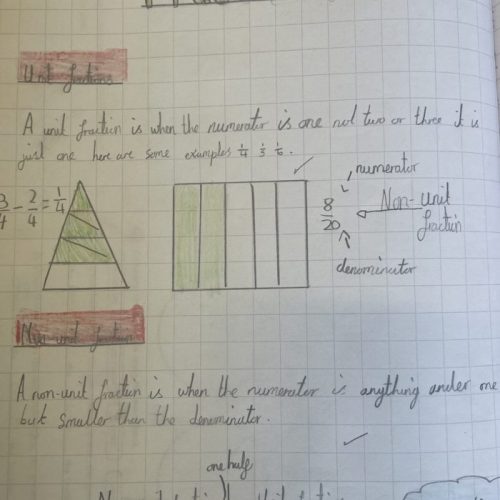 Unit fractions
A unit fraction is when the numerator is one not two or three it is
just one here are some examples 1/4 1/3 1/6.
3/4 - 2/4 = 1/4
numerator
8/20
Non-unit
fraction
denominator
Non-unit fraction
A non-unit fraction is when the numerator is anything ander one
but smaller than the denominator.
one half